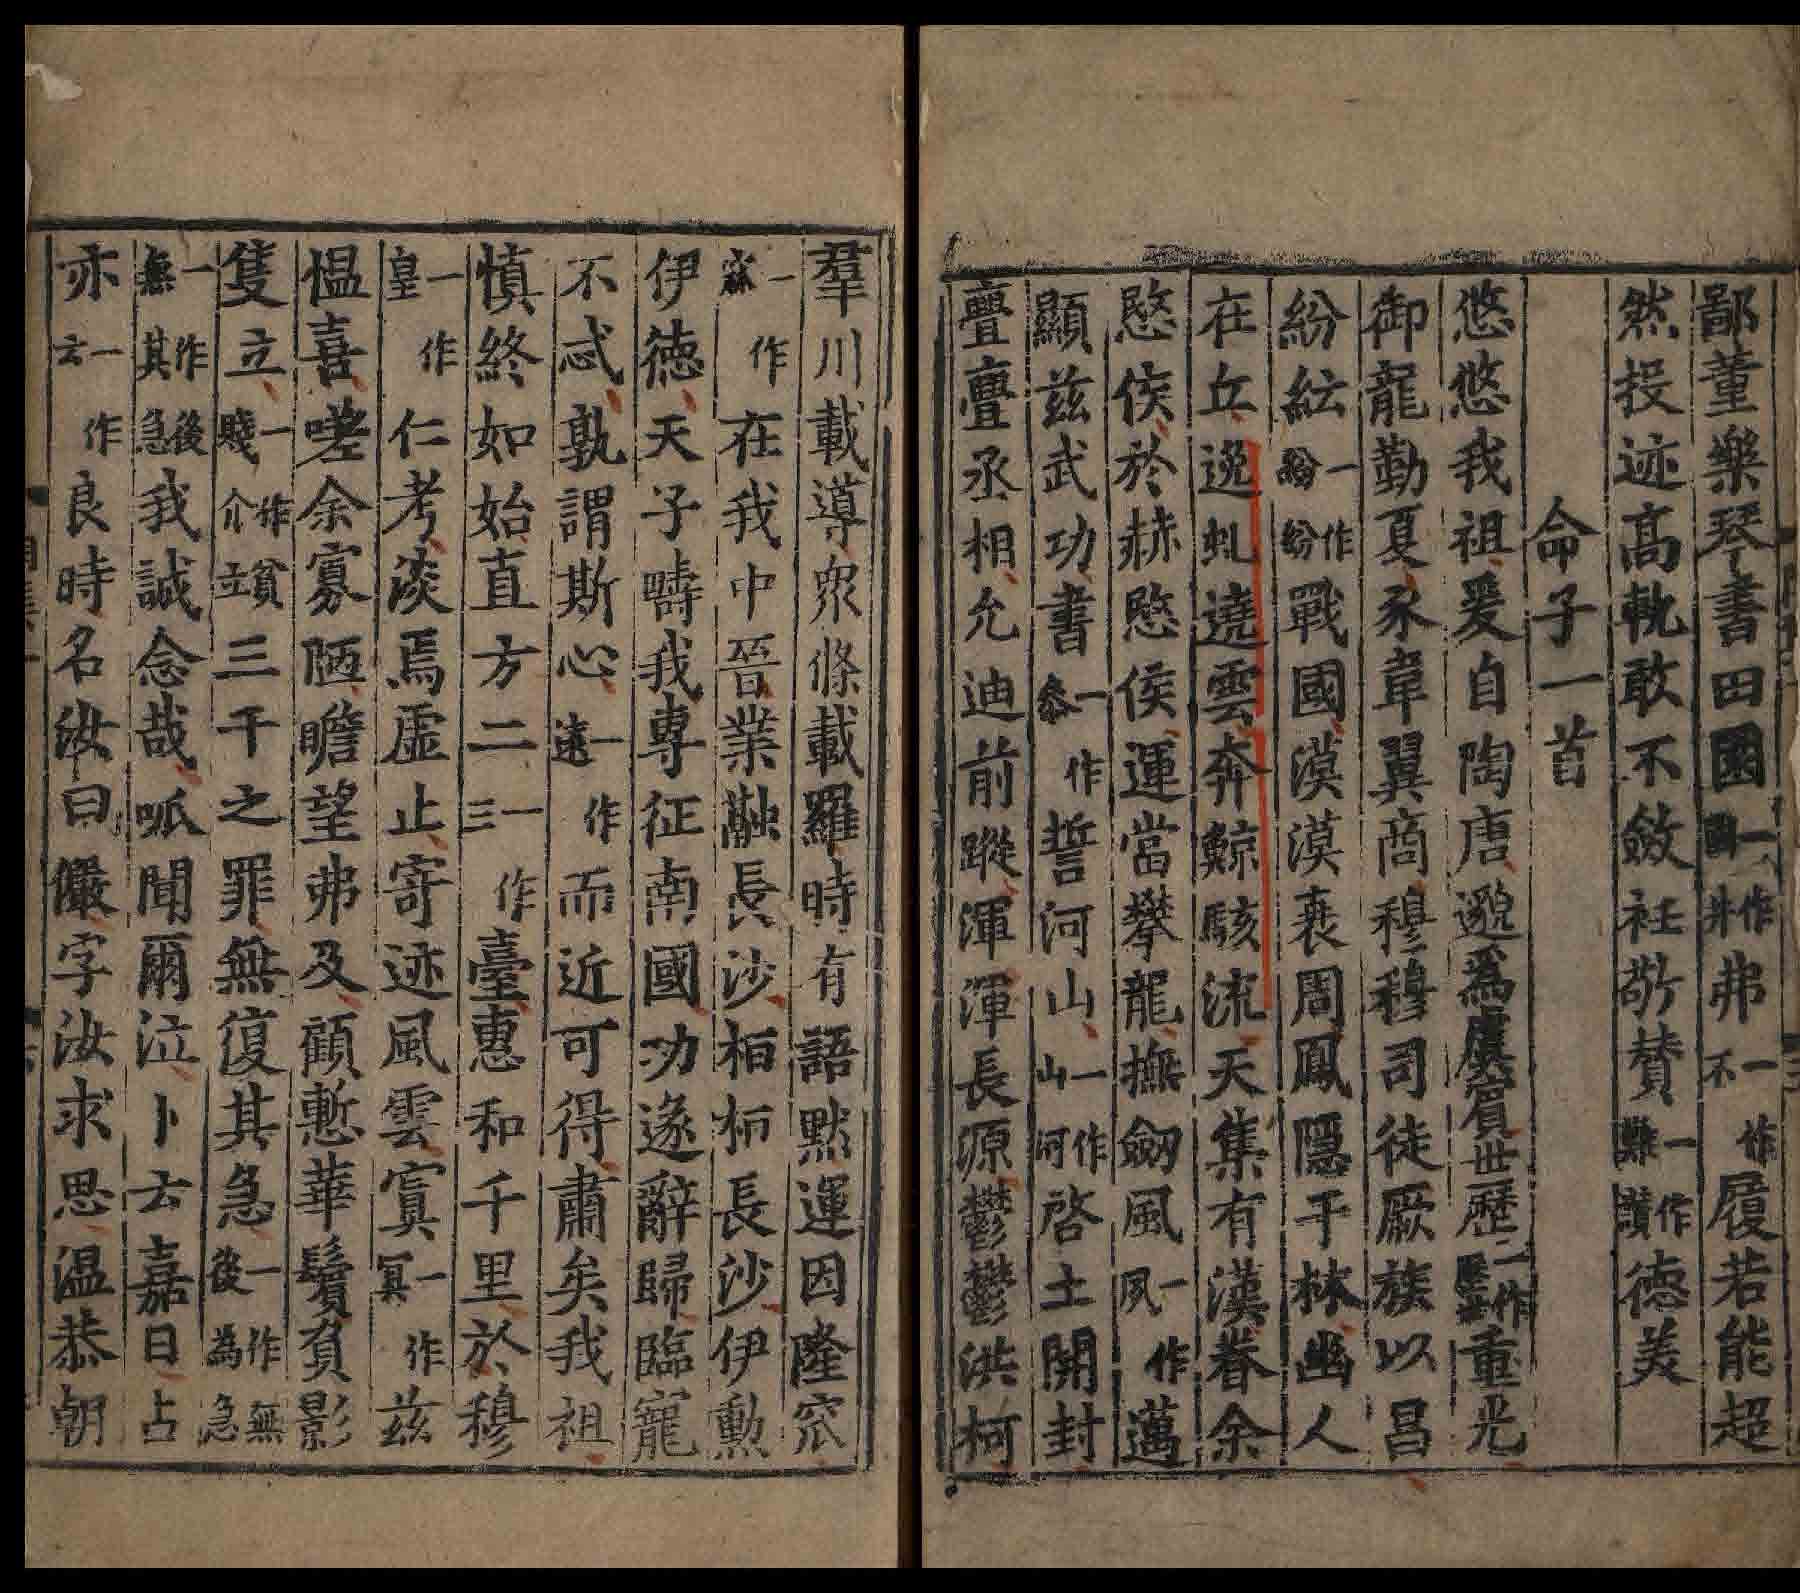 鄙董樂琴書田園一作國井弗一作不履若能超
然投迹髙軌敢不斂衽敬賛一作難讚徳美
命子一首
悠悠我祖爰自陶唐邈爲虞賔世歷一作歷世重光
御龍勤夏豕韋翼商穆穆司徒厥族以昌
紛紜一作紛紛戰國漠漠衰周鳳隱于林幽人
在丘逸虬遶雲奔鯨駭流天集有漢眷余
愍侯於赫愍侯運當攀龍撫劒風一作夙邁
顯茲武功書一作叅誓河山一作山河啓土開封
亹亹丞相允迪前蹤渾渾長源鬱鬱洪柯
羣川載導衆條載羅時有語黙運因隆窊
一作寐在我中晉業融長沙桓桓長沙伊勲
伊徳天子疇我專征南國功遂辭歸臨寵
不忒孰謂斯心一作遠而近可得肅矣我祖
慎終如始直方二一作三臺惠和千里於穆
一作皇仁考淡焉虛止寄迹風雲寘一作冥茲
愠喜嗟余寡陋瞻望弗及顧慙華鬢負影
隻立一作賤介貧立三千之罪無復其急一作後無為急
一作後無其急我誠念哉呱聞爾泣卜云嘉日占
亦一作云良時名汝曰儼字汝求思温恭朝